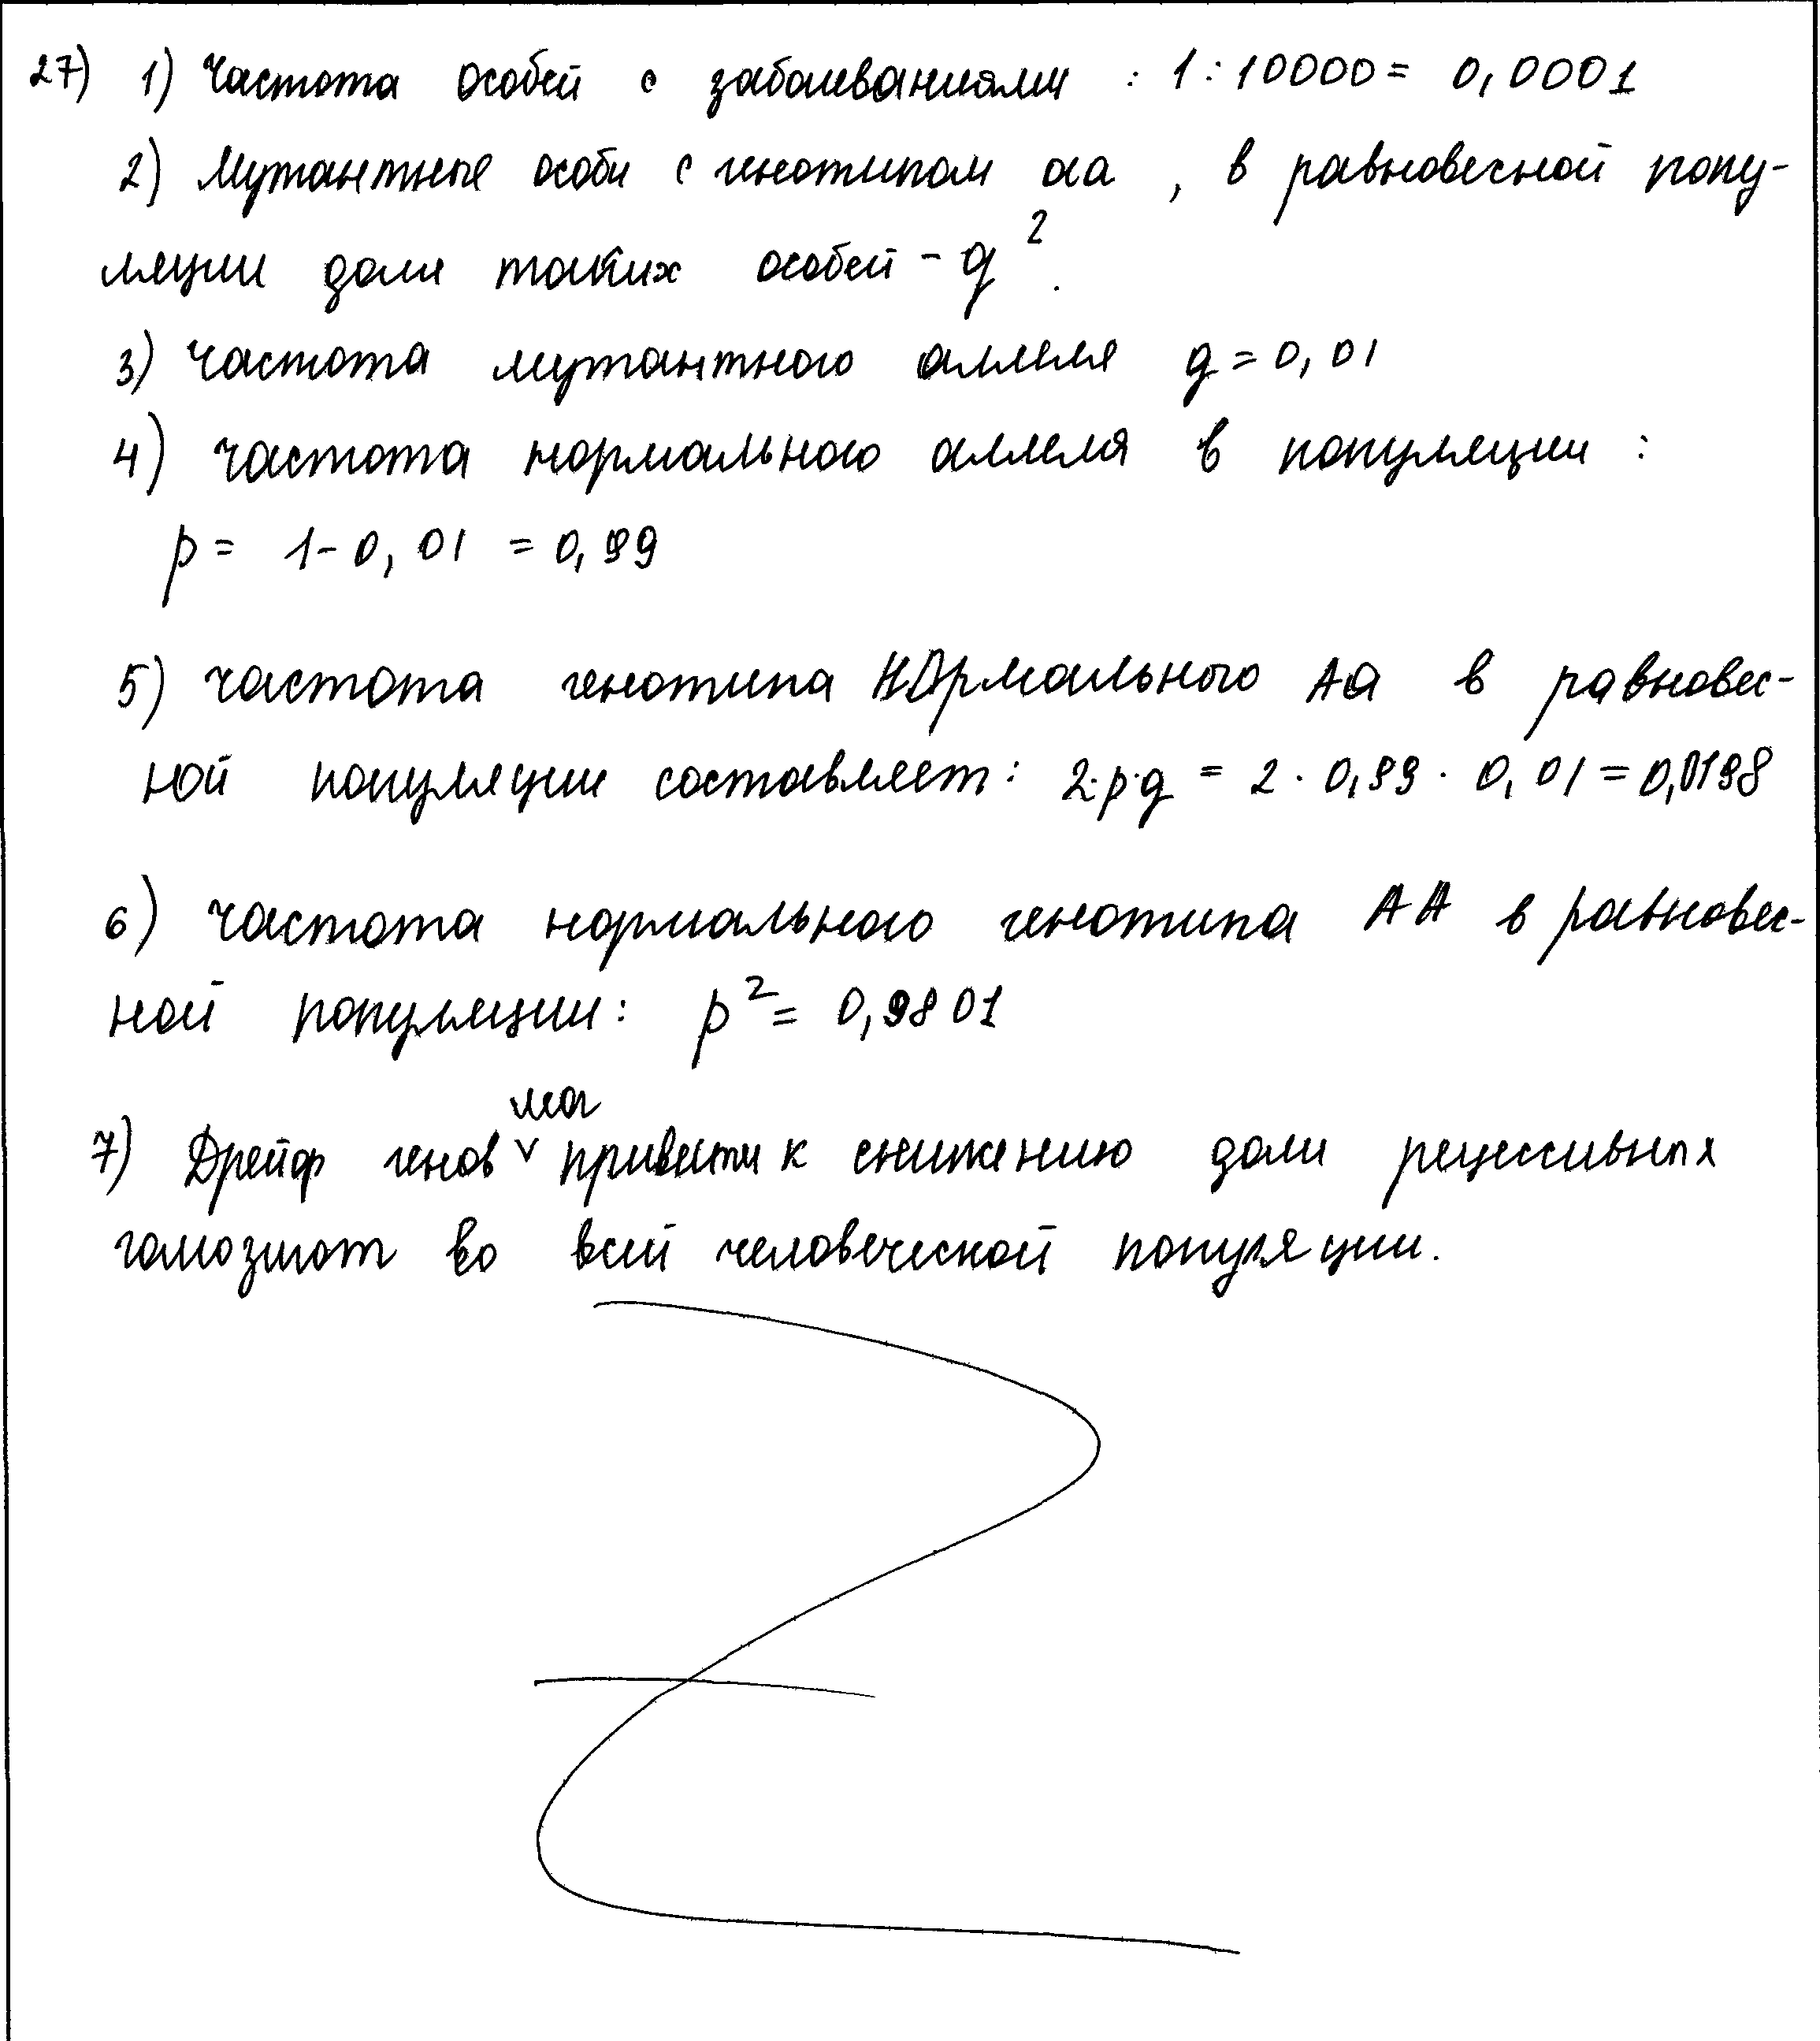 27) 1) Частота особей с заболеваниями : 1 : 10000 = 0,0001
2) Мутантные особи с генотипом аа , в равновесной попу-
ляции доля таких особей - q².
3) Частота мутантного аллеля q = 0,01
4) частота нормального аллеля в популяции :
p = 1 - 0,01 = 0,99
5) частота генотипа нормального Аа в равновес-
ной популяции составляет: 2·p·q = 2 · 0,99 · 0,01 = 0,0198
6) частота нормального генотипа АА в равновес-
ной популяции: p² = 0,9801
мог
7) Дрейф генов ∨ привести к снижению доли рецессивных
гомозигот во всей человеческой популяции.